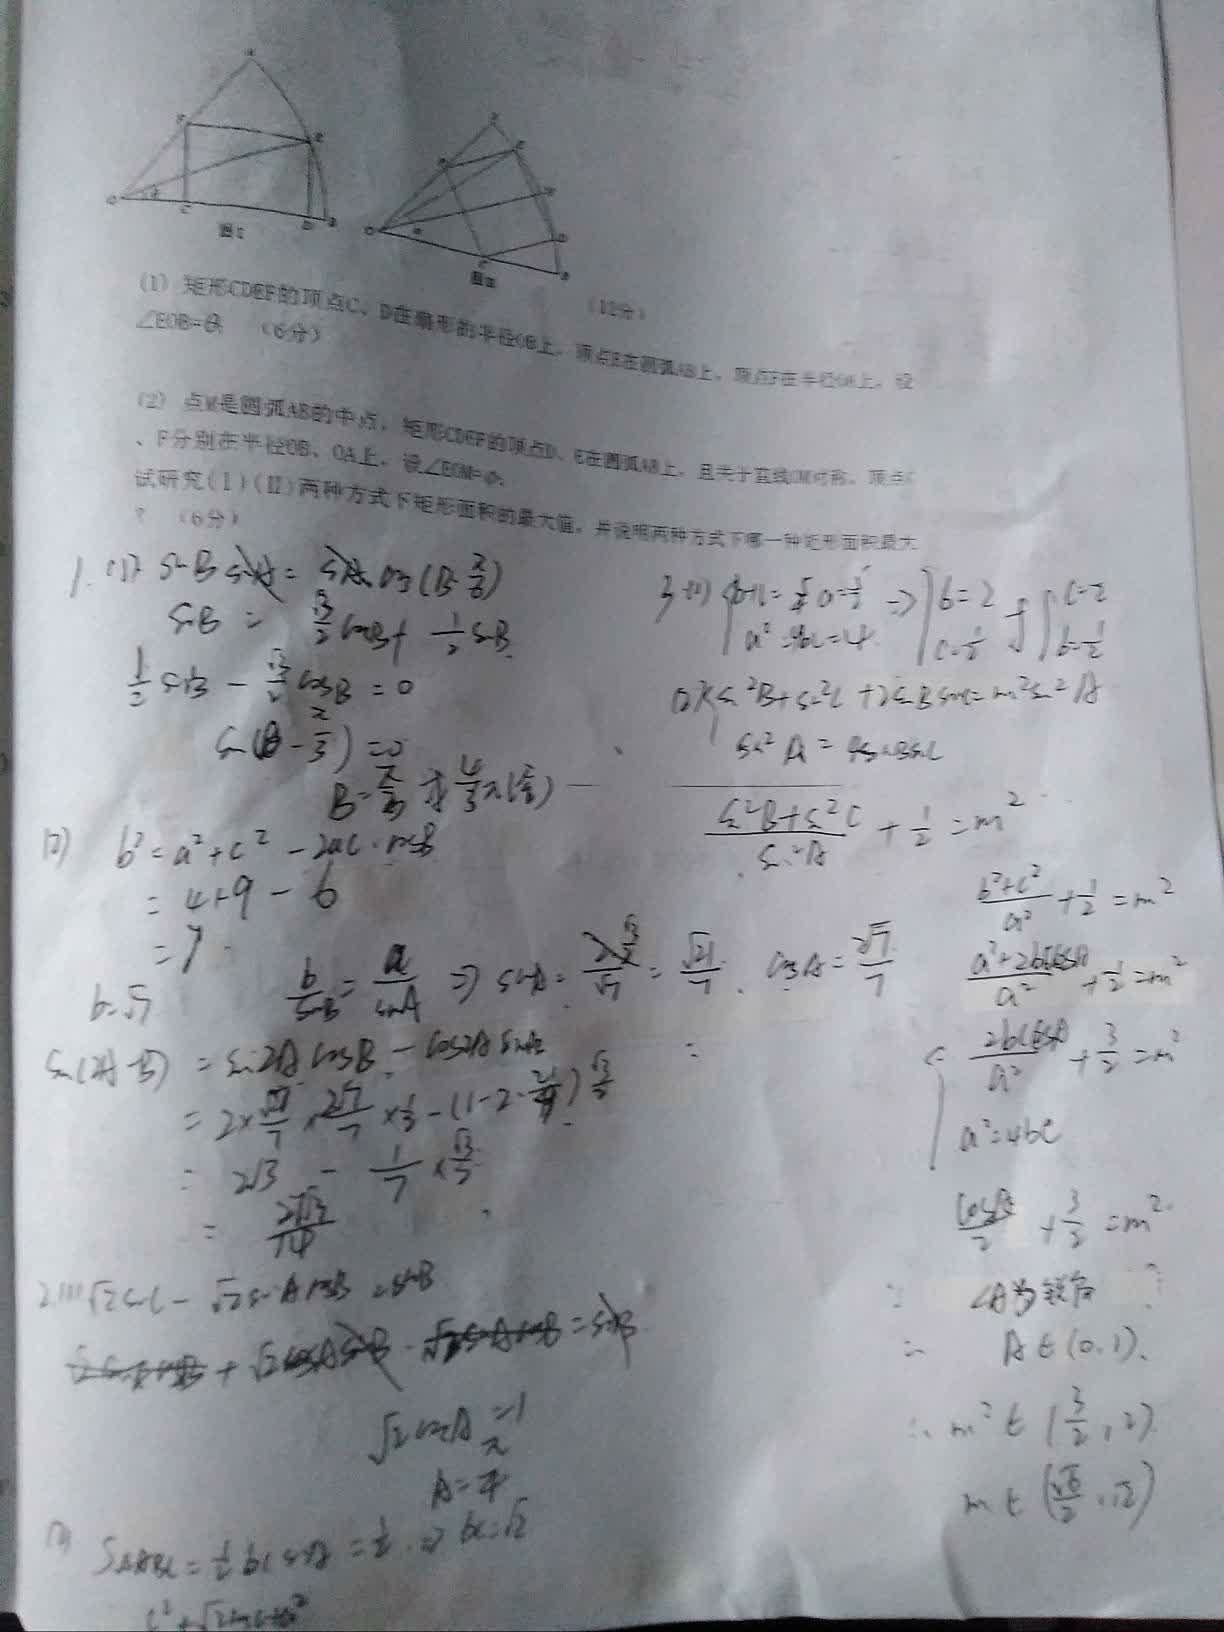 图I
图II
(12分)
(1) 矩形CDEF的顶点C、D在扇形的半径OB上，顶点E在圆弧AB上，顶点F在半径OA上，设
∠EOB=θ (6分)
(2) 点M是圆弧AB的中点，矩形CDEF的顶点D、E在圆弧AB上，且关于直线OM对称，顶点C
、F分别在半径OB、OA上，设∠EOM=φ;
试研究(I)(II)两种方式下矩形面积的最大值，并说明两种方式下哪一种矩形面积最大
? (6分)
1. (1) sinB sinA = sinA cos(B-π/6)
sinB = √3/2 cosB + 1/2 sinB
1/2 sinB - √3/2 cosB = 0
sin(B-π/3)=0
B=π/3 或 4/3π(舍)
(2) b²=a²+c²-2ac·cosB
= 4+9-6
= 7
b=√7
b/sinB = a/sinA ⇒ sinA = = √21/7 . cosA = 2√7/7
sin(2A-B) = sin2A cosB - cos2A sinB
2 (1) √2 sinC - √2 sinA cosB = sinB
√2 cosA = 1
A=π/4
(2) S△ABC = 1/2 bc sinA = 1/2 ⇒ bc=√2
3. (1)
a²=4bc=4
⇒ b=2
c=1/2
或 c=2
b=1/2
(2) sin²B+sin²C+2sinB sinC=m² sin²A
sin²A = 4sinB sinC
(sin²B+sin²C)/sin²A + 1/2 = m²
(b²+c²)/a² + 1/2 = m²
(a²+2bc cosA)/a² + 1/2 = m²
2bc cosA/a² + 3/2 = m²
a²=4bc
cosA/2 + 3/2 = m²
∵ ∠A为锐角
∴ A∈(0,1).
∴ m²∈(3/2, 2)
m∈(√6/2, √2)